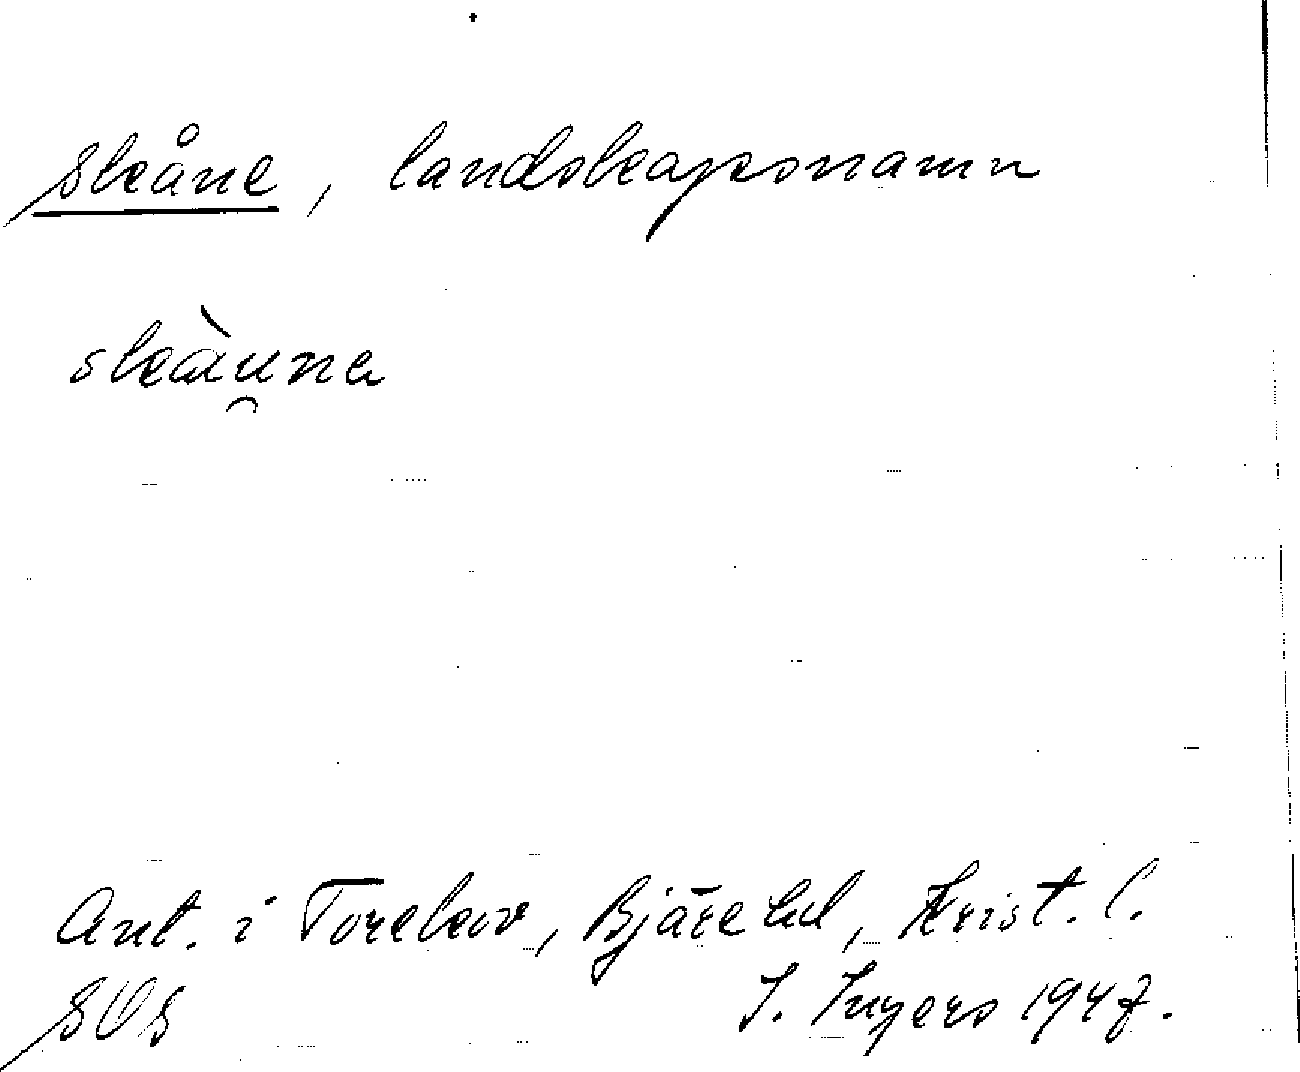 Skåne, landskapsnamn
skàu̯na
Ant. i Torekov, Bjäre hd, Krist. l.
SOS I. Ingers 1947.